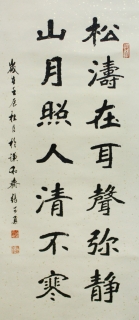 松濤在耳聲弥静
山月照人清不寒
歲次壬辰桂月於